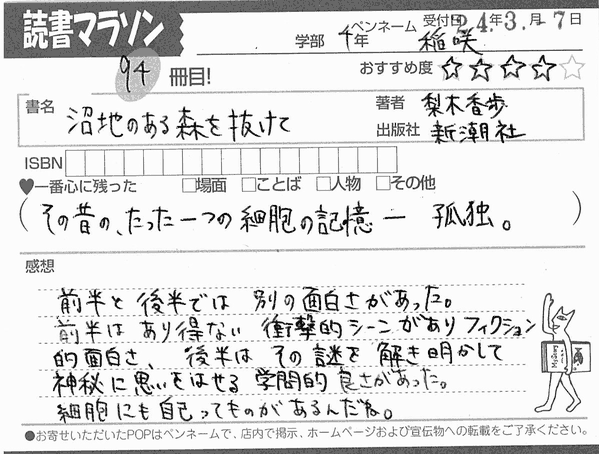 読書マラソン
94冊目!
学部 4年 ペンネーム 稲咲 受付日 24年3月-7日
おすすめ度 ☆☆☆☆☆
書名 沼地のある森を抜けて
著者 梨木香歩
出版社 新潮社
ISBN
♥一番心に残った □場面 □ことば □人物 □その他
(その昔の、たった一つの細胞の記憶 ー 孤独。)
感想
前半と後半では 別の面白さがあった。
前半は あり得ない 衝撃的シーンがありフィクション
的面白さ、後半は その謎を 解き明かして
神秘に思いをはせる 学問的良さがあった。
細胞にも自己ってものがあるんだね。
●お寄せいただいたPOPはペンネームで、店内で掲示、ホームページおよび宣伝物への転載をご了承ください。